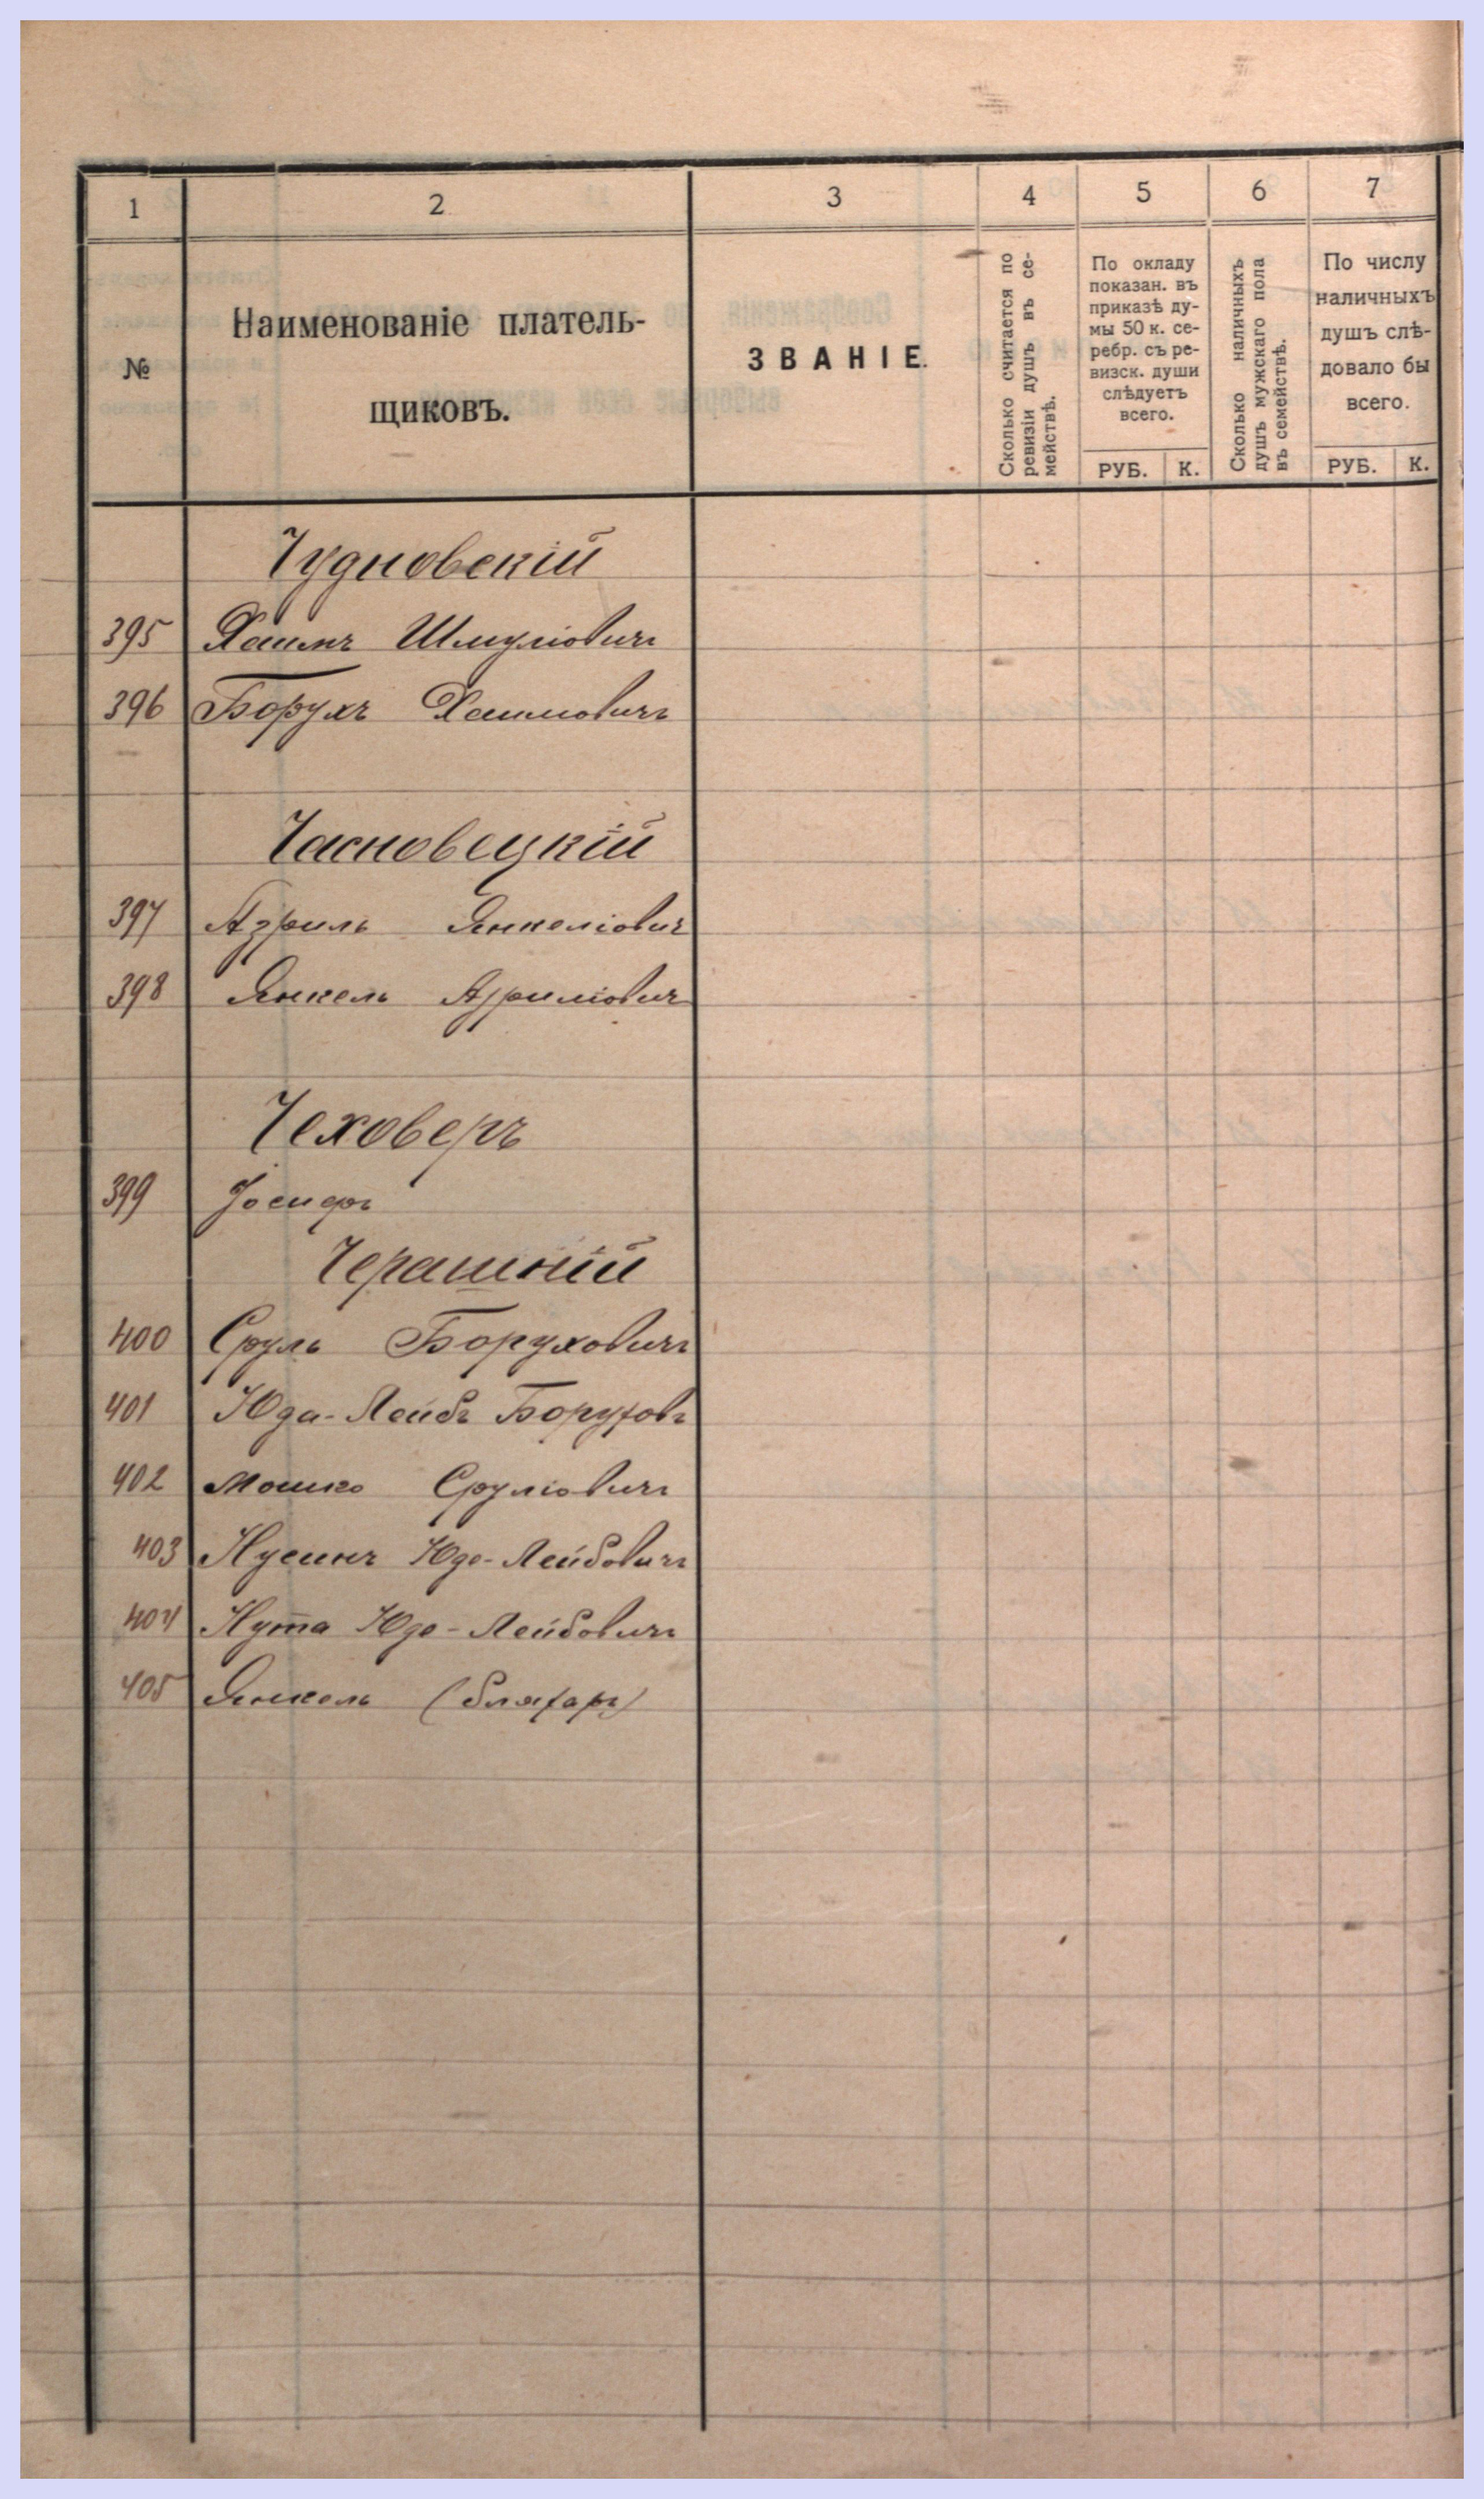 1 2 3 4 5 6 7
№
Наименованіе платель-
щиковъ.
ЗВАНІЕ.
Сколько считается по
ревизіи душъ въ се-
мействѣ.
По окладу
показан. въ
приказѣ ду-
мы 50 к. се-
ребр. съ ре-
визск. души
слѣдуетъ
всего.
РУБ. К.
Сколько наличныхъ
душъ мужскаго пола
въ семействѣ.
По числу
наличныхъ
душъ слѣ-
довало бы
всего.
РУБ. К.
Чудновскій
395 Хаимъ Шмуліовичъ
396 Борухъ Хаимовичъ
Часновецкій
397 Азриль Янкеліович
398 Янкель Азриліович
Чеховеръ
399 Іосифъ
Черашній
400 Сруль Боруховичъ
401 Юда-Лейбъ Боруховъ
402 Мошко Сруліовичъ
403 Нусинъ Юдо-Лейбовичъ
404 Нута Юдо-Лейбовичъ
405 Янкель (бляхаръ)